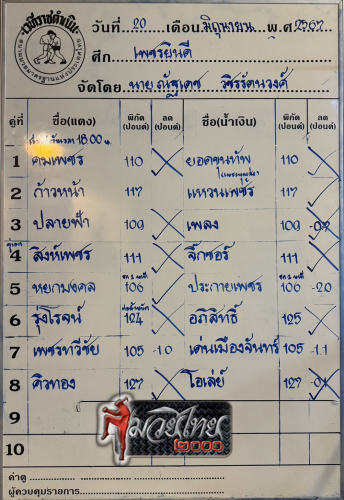 เวทีราชดำเนิน
วันที่ 20 เดือน มิถุนายน พ.ศ 2567
ศึก เพชรยินดี
จัดโดย นาย ณัฐเดช วชิรรัตนวงศ์
คู่ที่ ชื่อ(แดง) พิกัด (ปอนด์) ลด (ปอนด์) ชื่อ(น้ำเงิน) พิกัด (ปอนด์) ลด (ปอนด์)
18.00 น.
1 คมเพชร 110 ยอดขุนทัพ 110
2 ก้าวหน้า 117 แหวนเพชร 117
3 ปลายฟ้า 109 เพลง 109 -0.7
คู่เอก
4 สิงห์เพชร 111 จิ๊กซอร์ 111
5 หยกมงคล 106 ประกายเพชร 106 -2.0
6 รุ่งโรจน์ 124 อภิสิทธิ์ 125
7 เพชรทวีชัย 105 -1.0 เด่นเมืองจันทร์ 105 -1.1
8 คิวทอง 127 โอเล่ย์ 127 -0.1
9
10
มวยไทย
๒๐๐๐
ค่าดู
ผู้ควบคุมรายการ